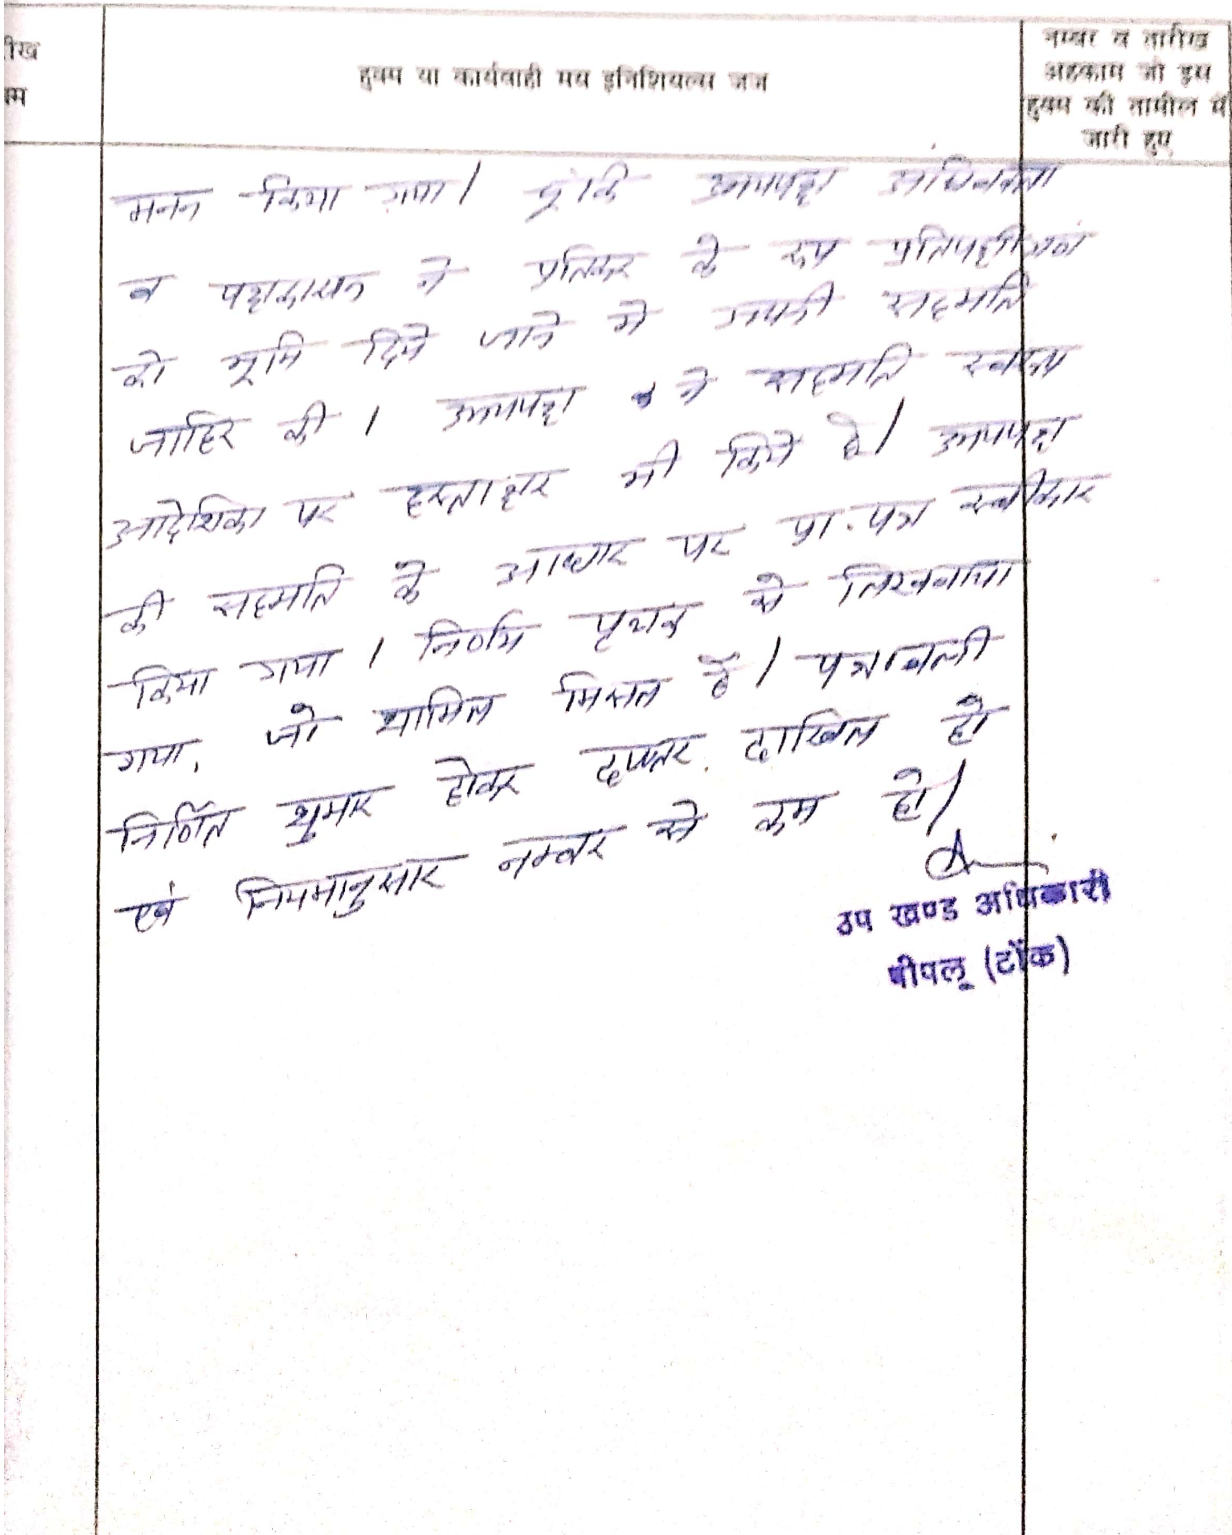 रीख
हुक्म या कार्यवाही मय इनिशियल्स जज
नम्बर व तारीख
अहकाम जो इस
हुक्म की तामील में
जारी हुए
मनन किया गया। चूंकि उभयपक्ष अधिवक्ता
व पक्षकारान ने प्रतिकर के रूप प्रतिपक्षीगण
को भूमि दिये जाने में अपनी सहमति
जाहिर की। उभयपक्ष ने सहमति स्वरूप
आदेशिका पर हस्ताक्षर भी किये है। उभयपक्ष
की सहमति के आधार पर प्रा. पत्र स्वीकार
किया गया। निर्णय पृथक से लिखवाया
गया, जो शामिल मिसल है। पत्रावली
निर्णित शुमार होकर दफ्तर दाखिल हो
एवं नियमानुसार नम्बर से कम हो।
उप खण्ड अधिकारी
पीपलू (टोंक)